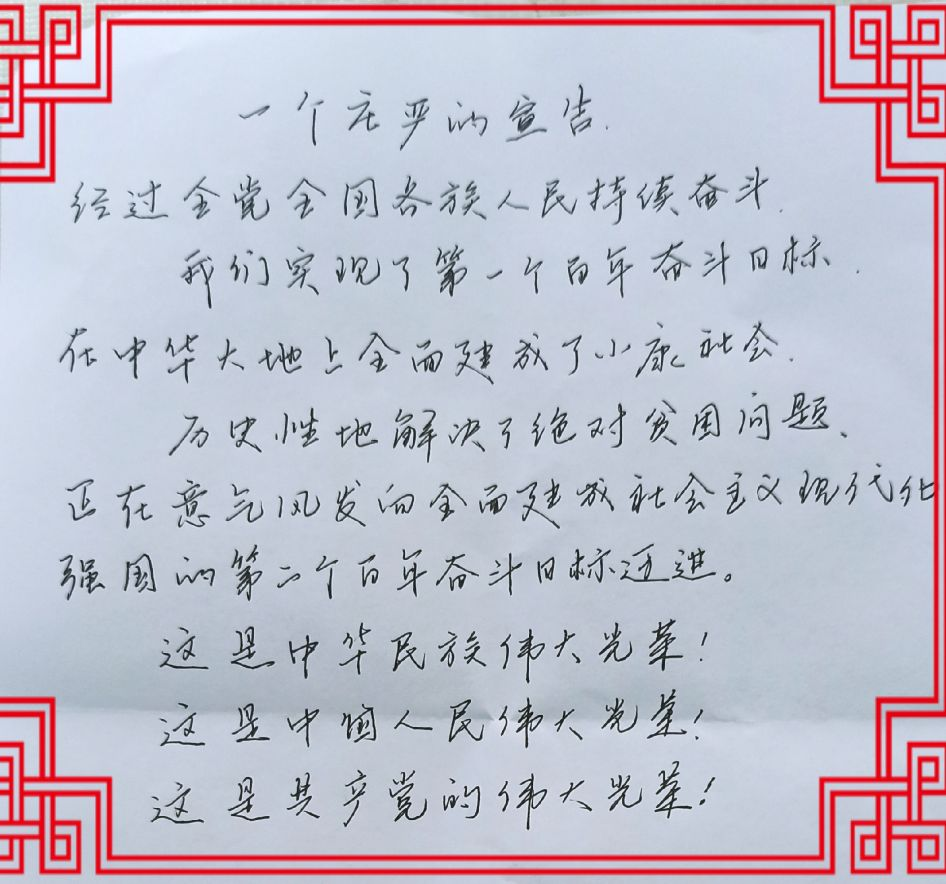 一个庄严的宣告.
经过全党全国各族人民持续奋斗.
我们实现了第一个百年奋斗目标.
在中华大地上全面建成了小康社会.
历史性地解决了绝对贫困问题、
正在意气风发向全面建成社会主义现代化
强国的第二个百年奋斗目标迈进。
这是中华民族伟大光荣!
这是中国人民伟大光荣!
这是共产党的伟大光荣!